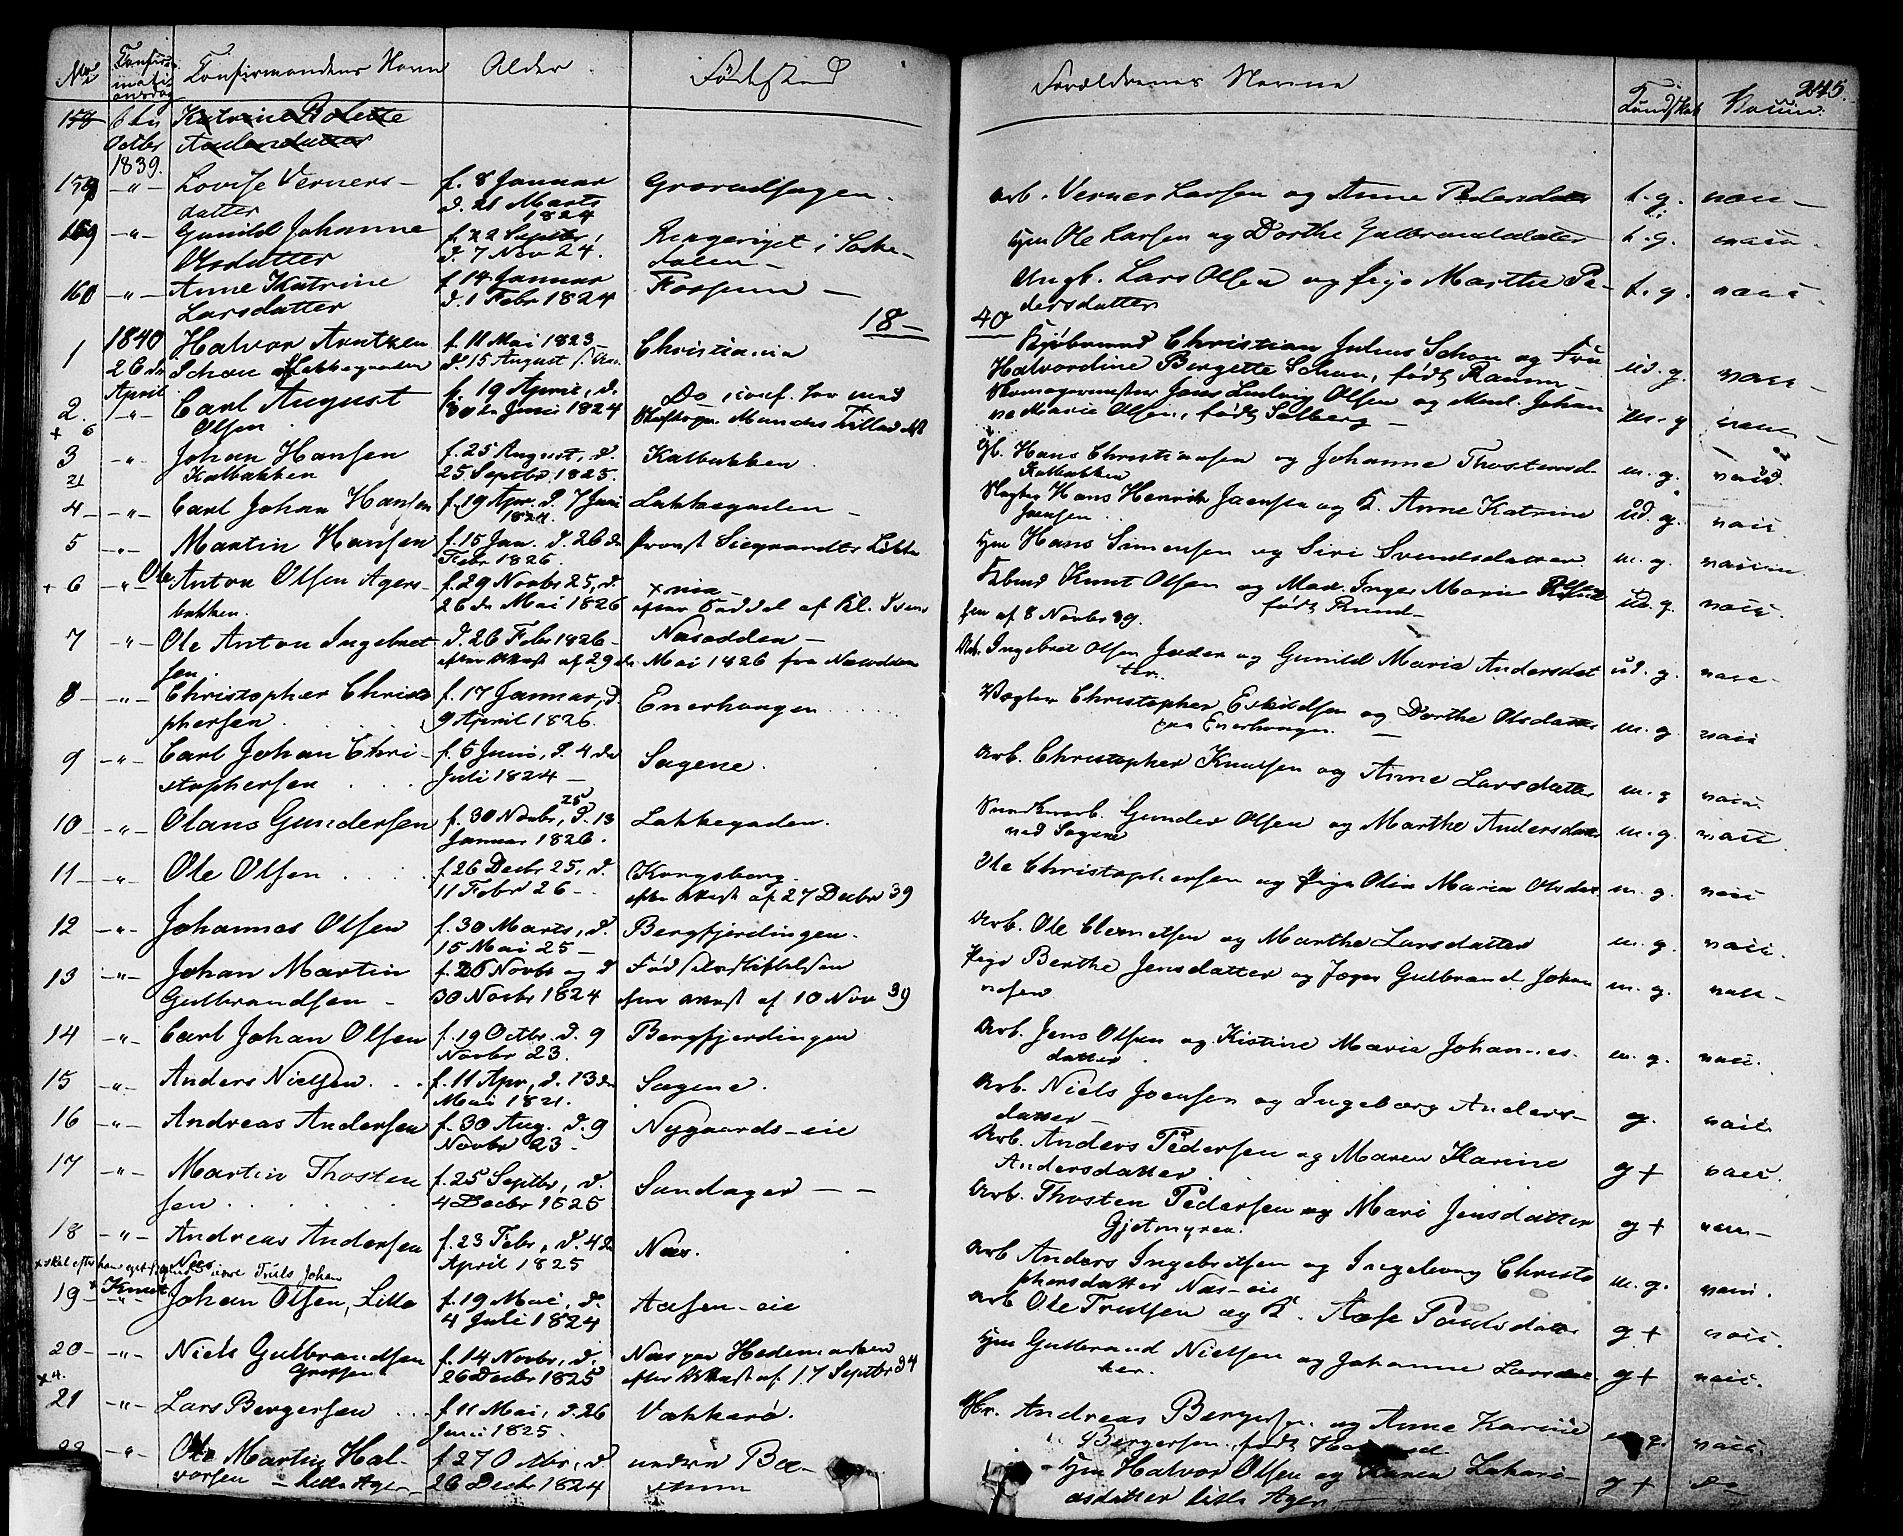 No
Confirmationsdag
Confirmandens Navn
Alder
Fødested
Forældrenes Navne
Kundskab
Vaccin.
245.
158 6te Octbr 1839. Katrine Bolette
159 -"- Lovise Verners-
datter
f. 8 Januar
d. 21 Marts
1824
Grorudhagen.
Arb. Verner Larsen og Anne Pedersdatter t.g. vacc-
159 -"- Gunild Johanne
Olsdatter
f. 22 Septbr,
d. 7 Nov 24.
Ringeriget i Sørke-
dalen-
Hm Ole Larsen og Dorthe Gulbrandsdatter t.g. vacc.
160 -"- Anne Katrine
Larsdatter
f. 14 Januar
d. 1 Febr 1824
Fossum -
Ungk. Lars Olsen og Pige Marthe Pe-
dersdatter t.g. vacc.
18 - 40
1 1840 26de April Halvor Arntzen
Schou
f. 11 Mai 1823-
d. 15 August s. An.
Christiania
Kjøbmand Christian Julius Schou og Fru
Halvordine Bergette Schou, født Ramm- ud. g. vacc-
2. -"- Carl August
Olsen
f. 19 April, d.
30te Juni 1824
Do
Skomagermester Jens Ludvig Olsen og Mad. Johan
ne Marie Olsen, født Solberg- m-g vacc-
3 -"- Johan Hansen
Kalbakken
f. 25 August, d.
25 Septbr 1825.
Kalbakken
Hans Christiansen og Johanne Thostensd.
Kalbakken m. g. vacc.
4- -"- Carl Johan Hansen
f. 19 Apr. d. 7 Juni
1824.
Lakkegaden -
Hans Henrik Jacnsen og K. Anne Katrine
Jaensen ud. g. vacc
5 -"- Martin Hansen
f. 15 Jan. d. 26de
Febr 1826.
Provst Siegwardts Løkke
Hm Hans Simensen og Siri Svendsdatter m. g. vaccin.
+ 6 -"- Ole Anton Olsen Agers-
bakken.
f. 29 Novbr 25, d.
26de Mai 1826
Xnia-
efter Seddel af Kl. Svend
sen af 8 Novbr 39.
Knut Olsen og Mad. Inger Marie
født Rund- ud. g. vacc.
7 -"- Ole Anton Ingebret
sen.
d. 26 Febr 1826-
efter Attest af 29de Mai 1826 fra Næsodden
Næsodden-
Arb. Ingebret Olsen Jader og Gunild Marie Andersdat
ter. ud. g. vacc-
8- -"- Christopher Christo
phersen
f. 17 Januar, d.
9 April 1826.
Enerhaugen
Vægter Christopher Eskildsen og Dorthe Olsdatter
paa Enerhaugen m. g. vacc
9 -"- Carl Johan Chri-
stophersen
f. 5 Juni, d. 4de
Juli 1824-
Sagene.
Arb. Christopher Knutsen og Anne Larsdatter m. g vacc.
10- -"- Olaus Gundersen
f. 30 Novbr, 25 d. 13
Januar 1826.
Lakkegaden.
Gunder Olsen og Marthe Andersdatter
ved Sagene m. g. vacc.
11- -"- Ole Olsen
f. 26 Decbr 25, d.
11 Febr 26-
Kongsberg.
efter Attest af 27 Decbr 39
Ole Christophersen og Pige Olia Maria Olsdat m. g. vacc
12 -"- Johannes Olsen
f. 30 Marts, d.
15 Mai 25-
Bergfjerdingen-
Arb. Ole Clemetsen og Marthe Larsdatter m. g. vacc.
13 -"- Johan Martin
Gulbrandsen-
f. 26 Novbr og d
30 Novbr 1824
Fødselsstiftelsen
efter Attest af 10 Nov 39
Pige Berthe Jensdatter og Jæger Gulbrand Johan
nesen m. g. vacc-
14 -"- Carl Johan Olsen
f. 19 Octbr. d. 9
Novbr 23.
Bergfjerdingen
Arb. Jens Olsen og Kistine Maria Johannes-
datter m. g. vacc.
15 -"- Anders Nielsen.
f. 11 Apr, d. 13de
Mai 1821.
Sagene.
Arb. Niels Joensen og Ingeborg Anders-
datter- g. vacc.
16 -"- Andreas Andersen
f. 30 Aug. d. 9
Novbr 23-
Nygaards-eie
Arb. Anders Pedersen og Maren Karine
Andersdatter g+ vacc.
17 -"- Martin Thosten
sen
f. 25 Septbr, d.
4 Decbr 1825
Sandager - -
Arb. Thosten Pedersen og Mari Jensdatter
Gjetmyren. g+ vacc-
18 -"- Andreas Andersen
Næs
f. 23 Febr, d. 4de
April 1825
Næs.
Arb Anders Ingebretsen og Ingeborg Christo
phersdatter Næs-eie m. g. vacc.
+ skal efter han eget være Truls Johan
19- Knut Johan Olsen, Lille
f. 19 Mai, d.
4 Juli 1824
Aasen-eie
Arb Ole Trulsen og K. Aase Paulsdatter g+ vacc.
20- -"- Niels Gulbrandsen
f. 14 Novbr, d.
26 Decbr 1825
Næs paa Hedemarken
efter Attest af 17 Septbr 34
Hm Gulbrand Nielsen og Johanne Larsdat
ter. g+ vacc.
21 -"- Lars Bergersen
f. 11 Mai, d. 26
Juni 1825.
Vækkerø.
Hr. Andreas Bergersen og Anne Karine
Bergersen, født vacc.
22 -"- Ole Martin Hal-
vorsen - Lille Ager
f. 27 Octbr, d.
26 Decbr 1824
under Bæ-
rum
Hm Halvor Olsen og Karen Zakari-
asdatter Lille Ager g+ do